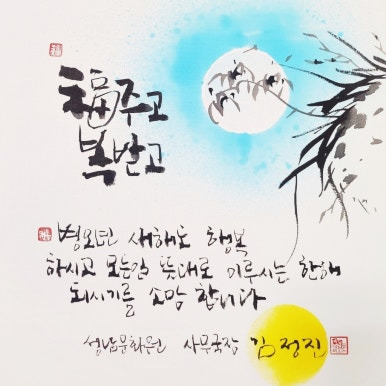 福주고
복받고
병오년 새해도 행복
하시고 모든일 뜻대로 이루시는 한해
되시기를 소망 합니다
성남문화원 사무국장 김정진